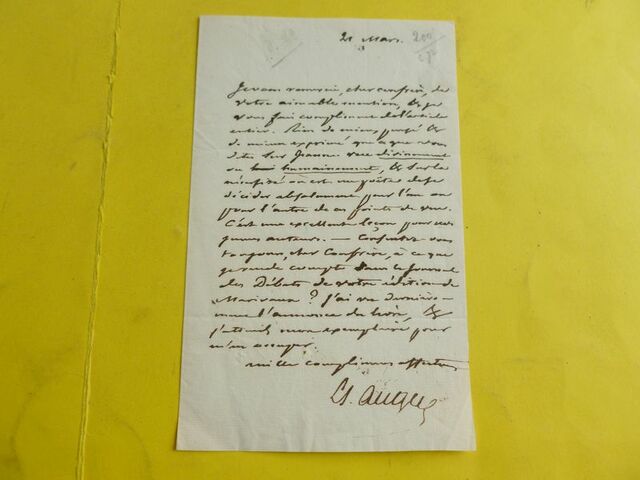 21 Mars. 200
Je vous remercie, cher confrère, de
votre aimable mention, & je
vous fais compliment de l'article
entier. Rien de mieux pensé &
de mieux exprimé que ce que vous
dites sur Jeanne vue divinement
ou humainement, & sur la
nécessité où est un poète de se
décider absolument pour l'un ou
pour l'autre de ces points de vue.
C'est une excellente leçon pour nos
jeunes auteurs. — Consentez vous
toujours, cher Confrère, à ce que
je rende compte dans le Journal
des Débats de votre édition de
Marivaux ? J'ai vu dernière-
ment l'annonce du livre, &
j'attends mon exemplaire pour
m'en occuper.
mille compliments affectueux